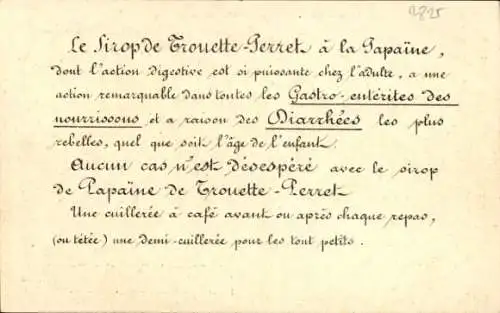 2825
Le Sirop de Trouette-Perret à la Papaïne,
dont l'action digestive est si puissante chez l'adulte, a une
action remarquable dans toutes les Gastro-entérites des
nourrissons et a raison des Diarrhées les plus
rebelles, quel que soit l'âge de l'enfant.
Aucun cas n'est désespéré avec le sirop
de Papaïne de Trouette-Perret
Une cuillerée à café avant ou après chaque repas,
(ou tétée) une demi-cuillerée pour les tout petits.